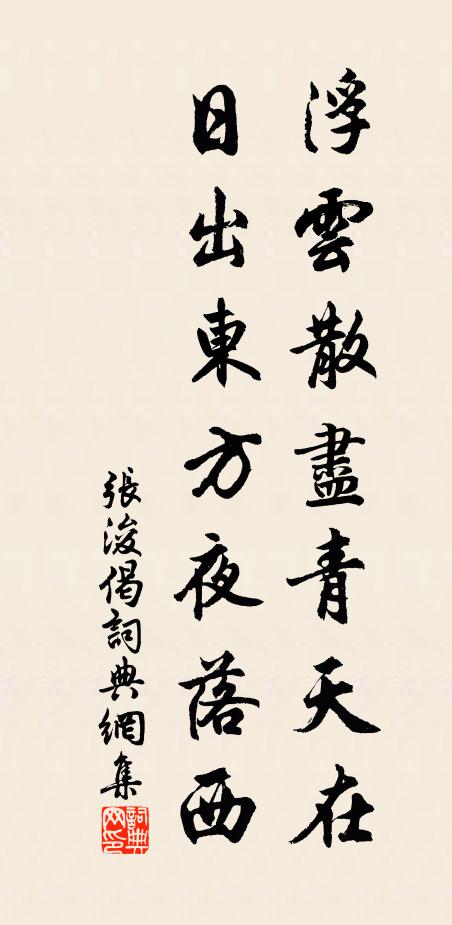 浮雲散盡青天在
日出東方夜落西
張浚偈詞典網集
詞典網印